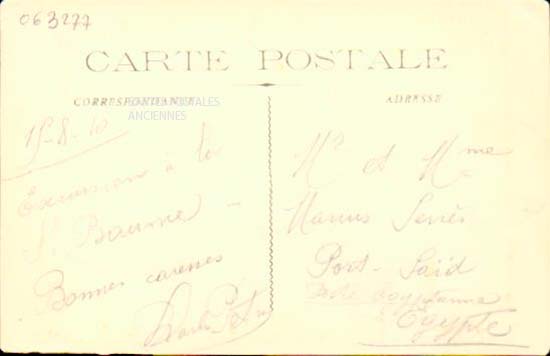 063277
CARTE POSTALE
CORRESPONDANCE
ADRESSE
CARTES POSTALES
ANCIENNES
15-8-10
Excursion à la
St Baume
Bonnes caresses
Mr et Mme
Marius Serrès
Port-Saïd
Poste égyptienne
Egypte